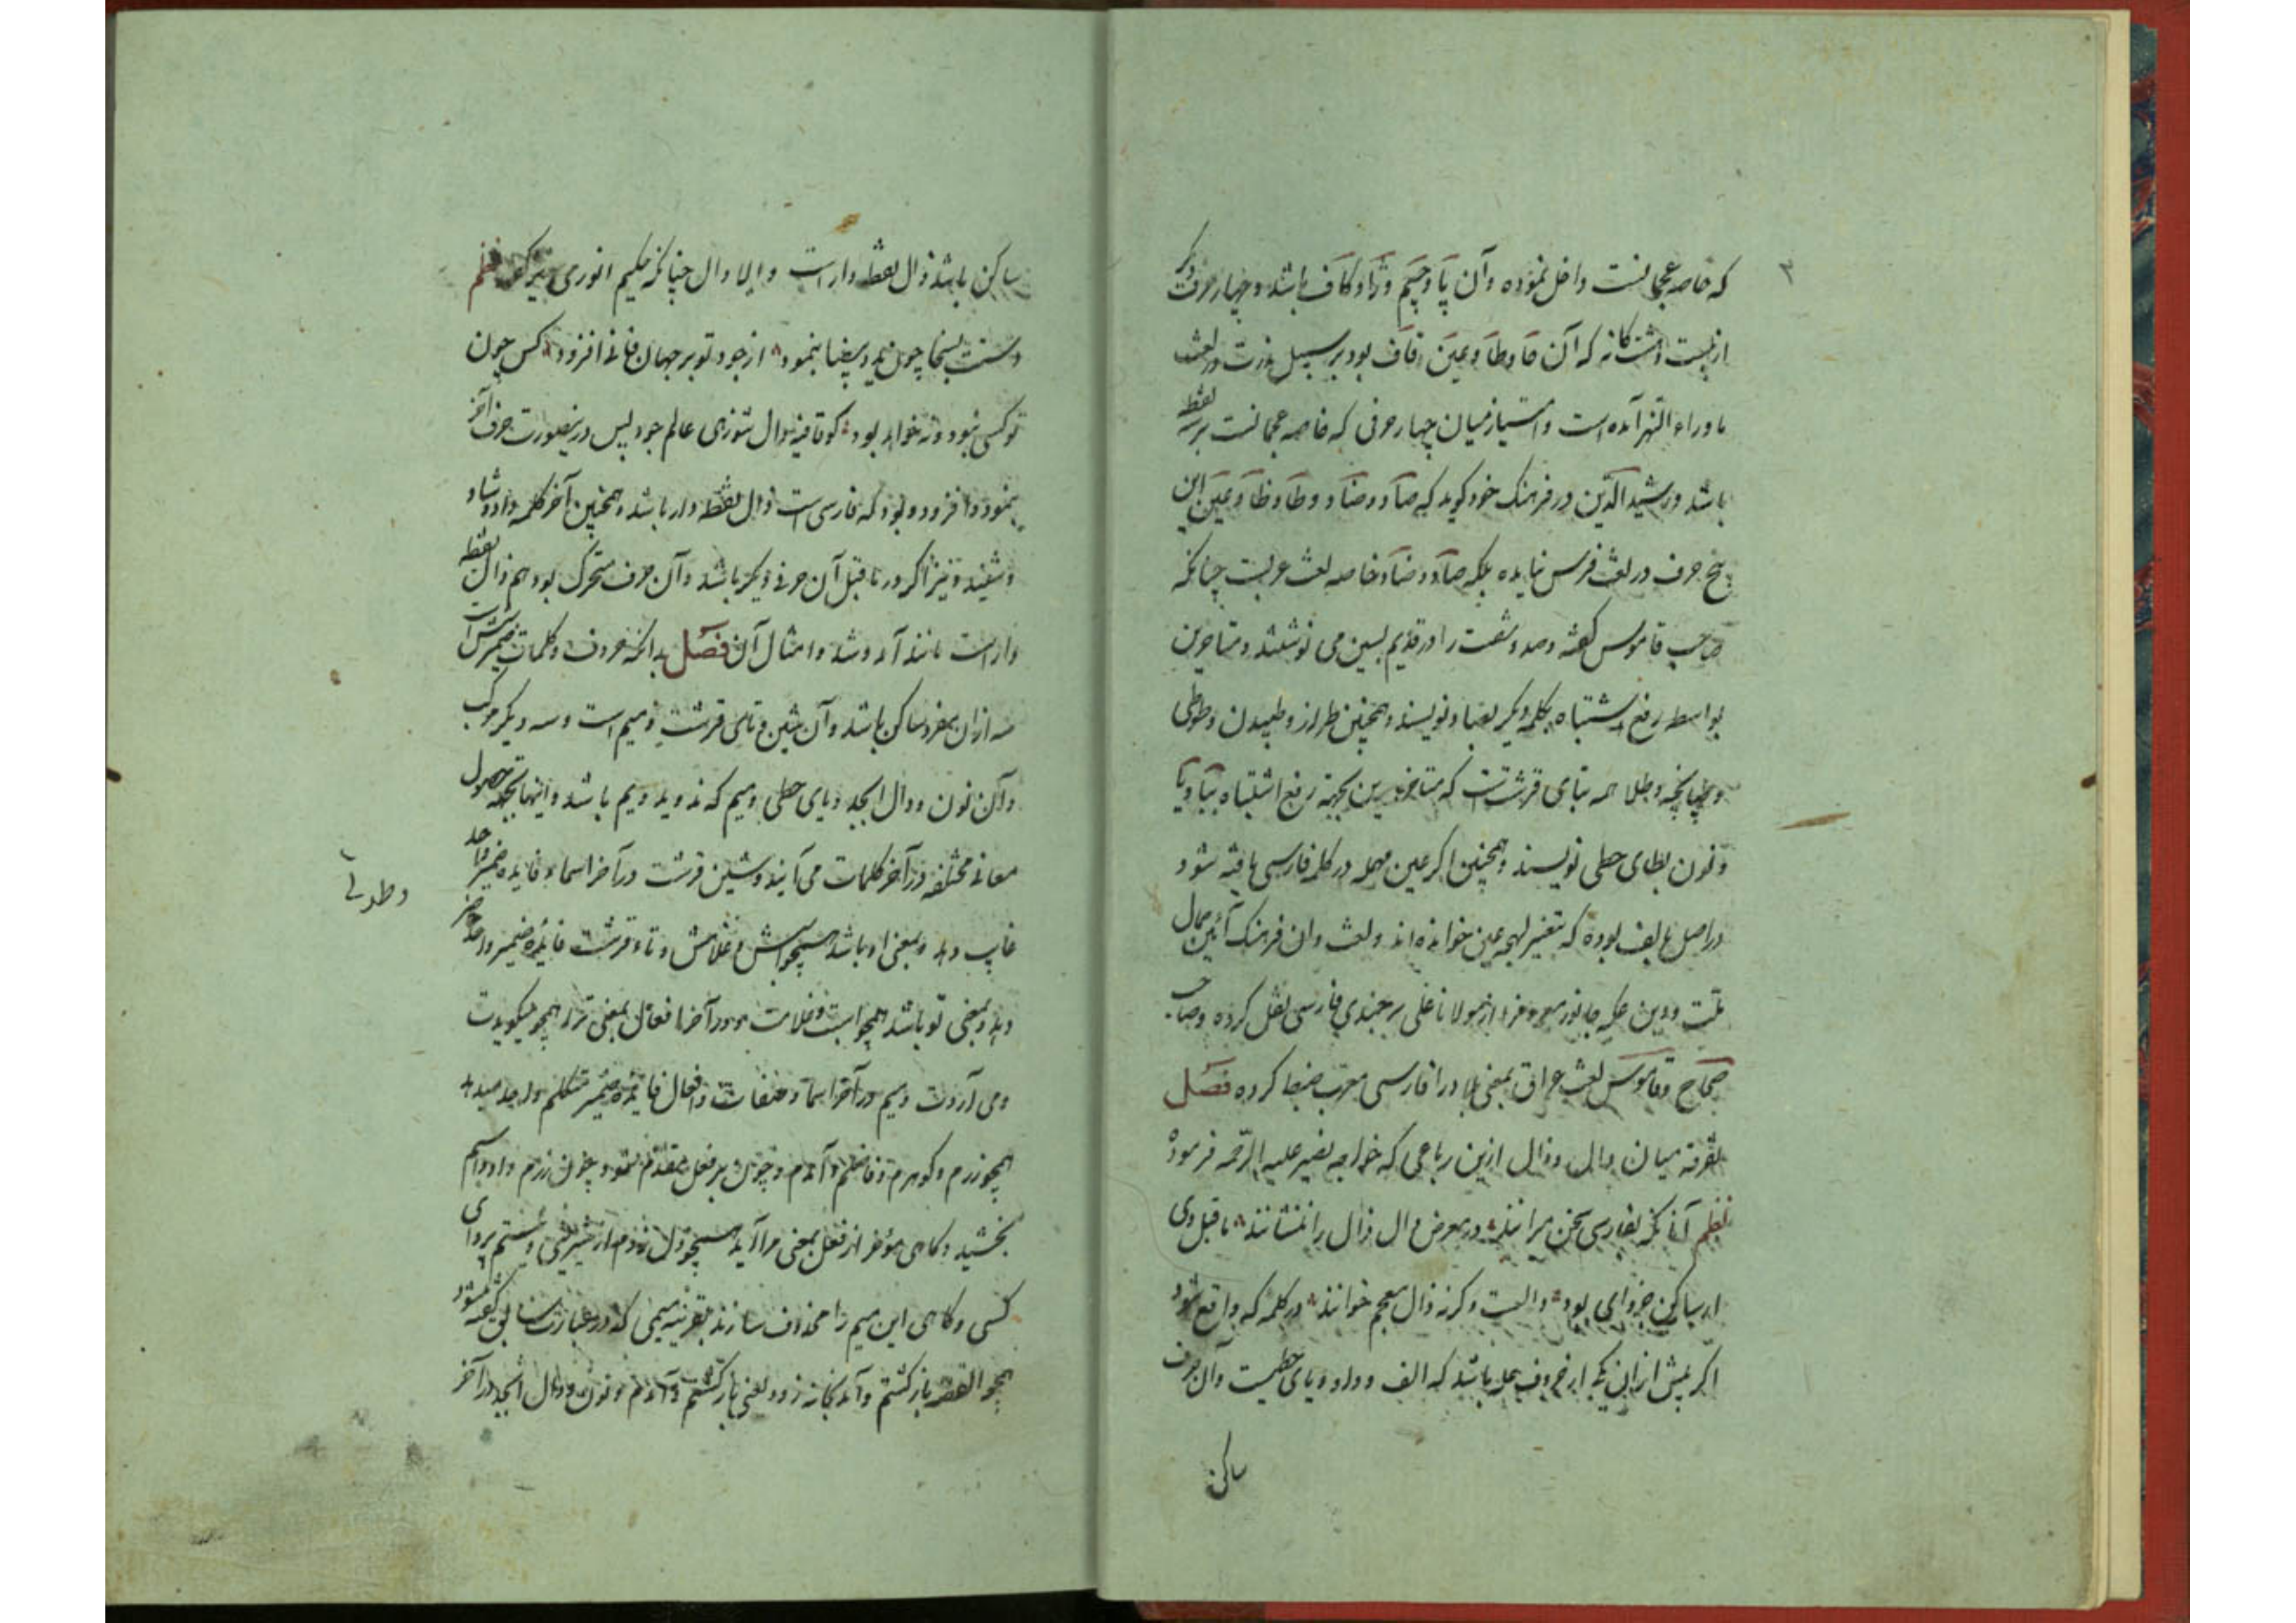 ۳
که خاصه عجمانست داخل نموده و آن پا و چیم و ژا و کاف باشد و چهار حرف دیگر
از بیست و هشت گانه که آن حا و طا و عین و قاف بود بر سبیل ندرت در لغت
ماوراء النهر آمده است و امتیاز میان چهار حرفی که خاصه عجمانست بر سه نقطه
باشد و رشید الدین در فرهنک خود کوید که صاد و ضاد و طا و ظا و عین این
پنج حرف در لغت فرس نیامده بلکه صاد و ضاد خاصه لغت عربست چنانکه
صاحب قاموس کفته و صد و شصت را در قدیم بسین می نوشتند و متأخرین
بواسطه رفع اشتباه بکلمه دیکر بصاد نویسند و همچنین طراز و طپیدن و طوطی
و طپانچه و طلا همه بتای قرشتست که متأخرین بجهة رفع اشتباه بتا و یا
و نون بطای حطی نویسند و همچنین اکر عین مهمله در کلمه فارسی یافته شود
در اصل بالف بوده که بتغیر لهجه عین خوانده اند و لغت وان فرهنک آئین
صحاح و قاموس لغت عراق بمعنی بلاد را فارسی معرب ضبط کرده فصل
تفرقه میان دال و ذال ازین رباعی که خواجه نصیر علیه الرحمه فرموده
نظم آنانکه بفارسی سخن میرانند در معرض دال ذال را ننشانند ماقبل وی
ار ساکن جز وای بود دالست وکرنه ذال معجم خوانند در کلمه که واقع شود
اکر پیش از این یکی از حروف عله باشد که الف و واو و یای حطیست و آن حرف
ساکن
ساکن باشد ذال نقطه دار است و الا دال چنانکه حکیم انوری نظم
دستت بسخا چون ید بیضا بنمود از جود تو بر جهان جهانی افزود کس چون
تو کسی نبود و نه خواهد بود کو قافیه دال شو زهی عالم جود پس در ینصورت حرف آخر
بنمود و افزود و بود که فارسی است ذال نقطه دار باشد و همچنین آخر کلمه داد و شاد
و شنید و نیز اکر در ماقبل آن حرفی دیکر باشد و آن حرف متحرک بود هم ذال نقطه
دار است مانند آمد و شد و امثال آن فصل بدانکه حروف و کلمات ضمیر شش است
سه ازان مفرد ساکن باشد و آن شین و تای قرشت و میم است و سه دیکر مرکب
و آن نون و دال ابجد و یای حطی و میم که ند و ید و یم باشد و اینها بجهة حصول
معانی مختلفه در آخر کلمات می آیند و شین قرشت در آخر اسماء فایده ضمیر واحد
غایب دهد و بمعنی او باشد همچو اسبش و غلامش و تاء قرشت فایده ضمیر واحد حاضر
دهد و بمعنی تو باشد همچو اسبت و غلامت و در آخر افعال بمعنی ترا همچو میکویدت
و می آردت و میم در آخر اسما و صفات و افعال فایده ضمیر متکلم واحد میدهد
همچو زرم و کوهرم و فاضلم و آمدم و چون بر فعل مقدم شود چون زرم داد و اسبم
بخشید و کاهی مؤخر از فعل بمعنی مرا آید
کسی و کاهی این میم را محذوف سازند بقرینه میمی که در عبارت سابق کفته شود
همچو القصه بازکشتم و آمد بخانه زود یعنی بازکشتم و آمدم و نون و دال ابجد در آخر